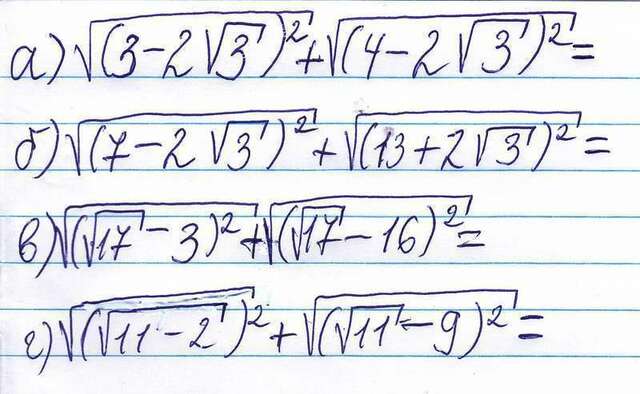 а) √(3-2√3)² + √(4-2√3)² =
б) √(7-2√3)² + √(13+2√3)² =
в) √(√17-3)² + √(√17-16)² =
г) √(√11-2)² + √(√11-9)² =